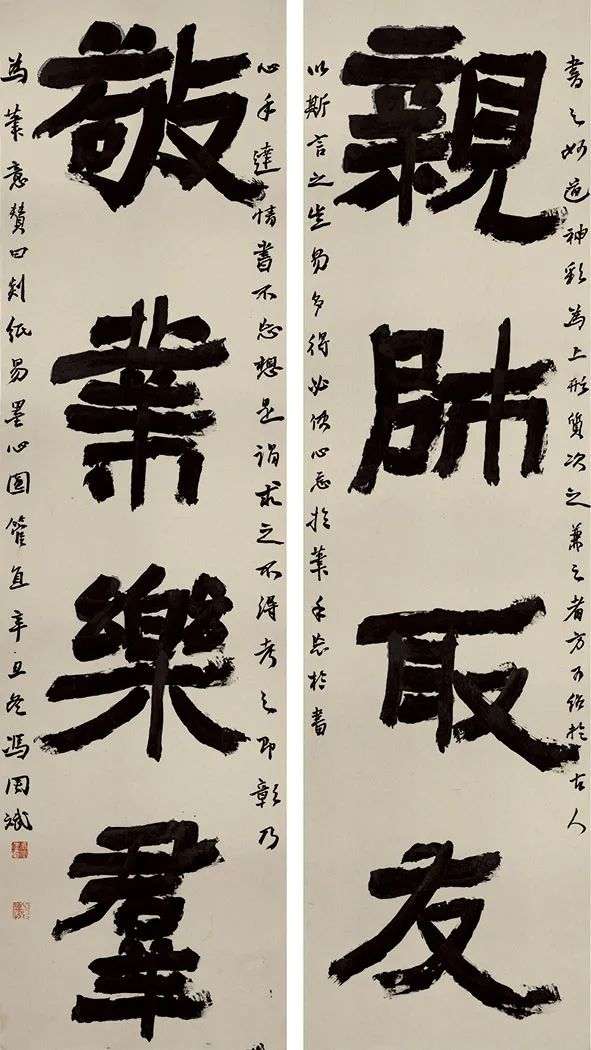 書之妙道神彩為上形質次之兼之者方可紹於古人
親師取友
以斯言之豈易多得必使心忘於筆手忘於書
心手達情書不忘想是謂求之不得考之即彰乃
敬業樂羣
為筆意贊曰剡紙易墨心圓管直辛丑冬馮国斌